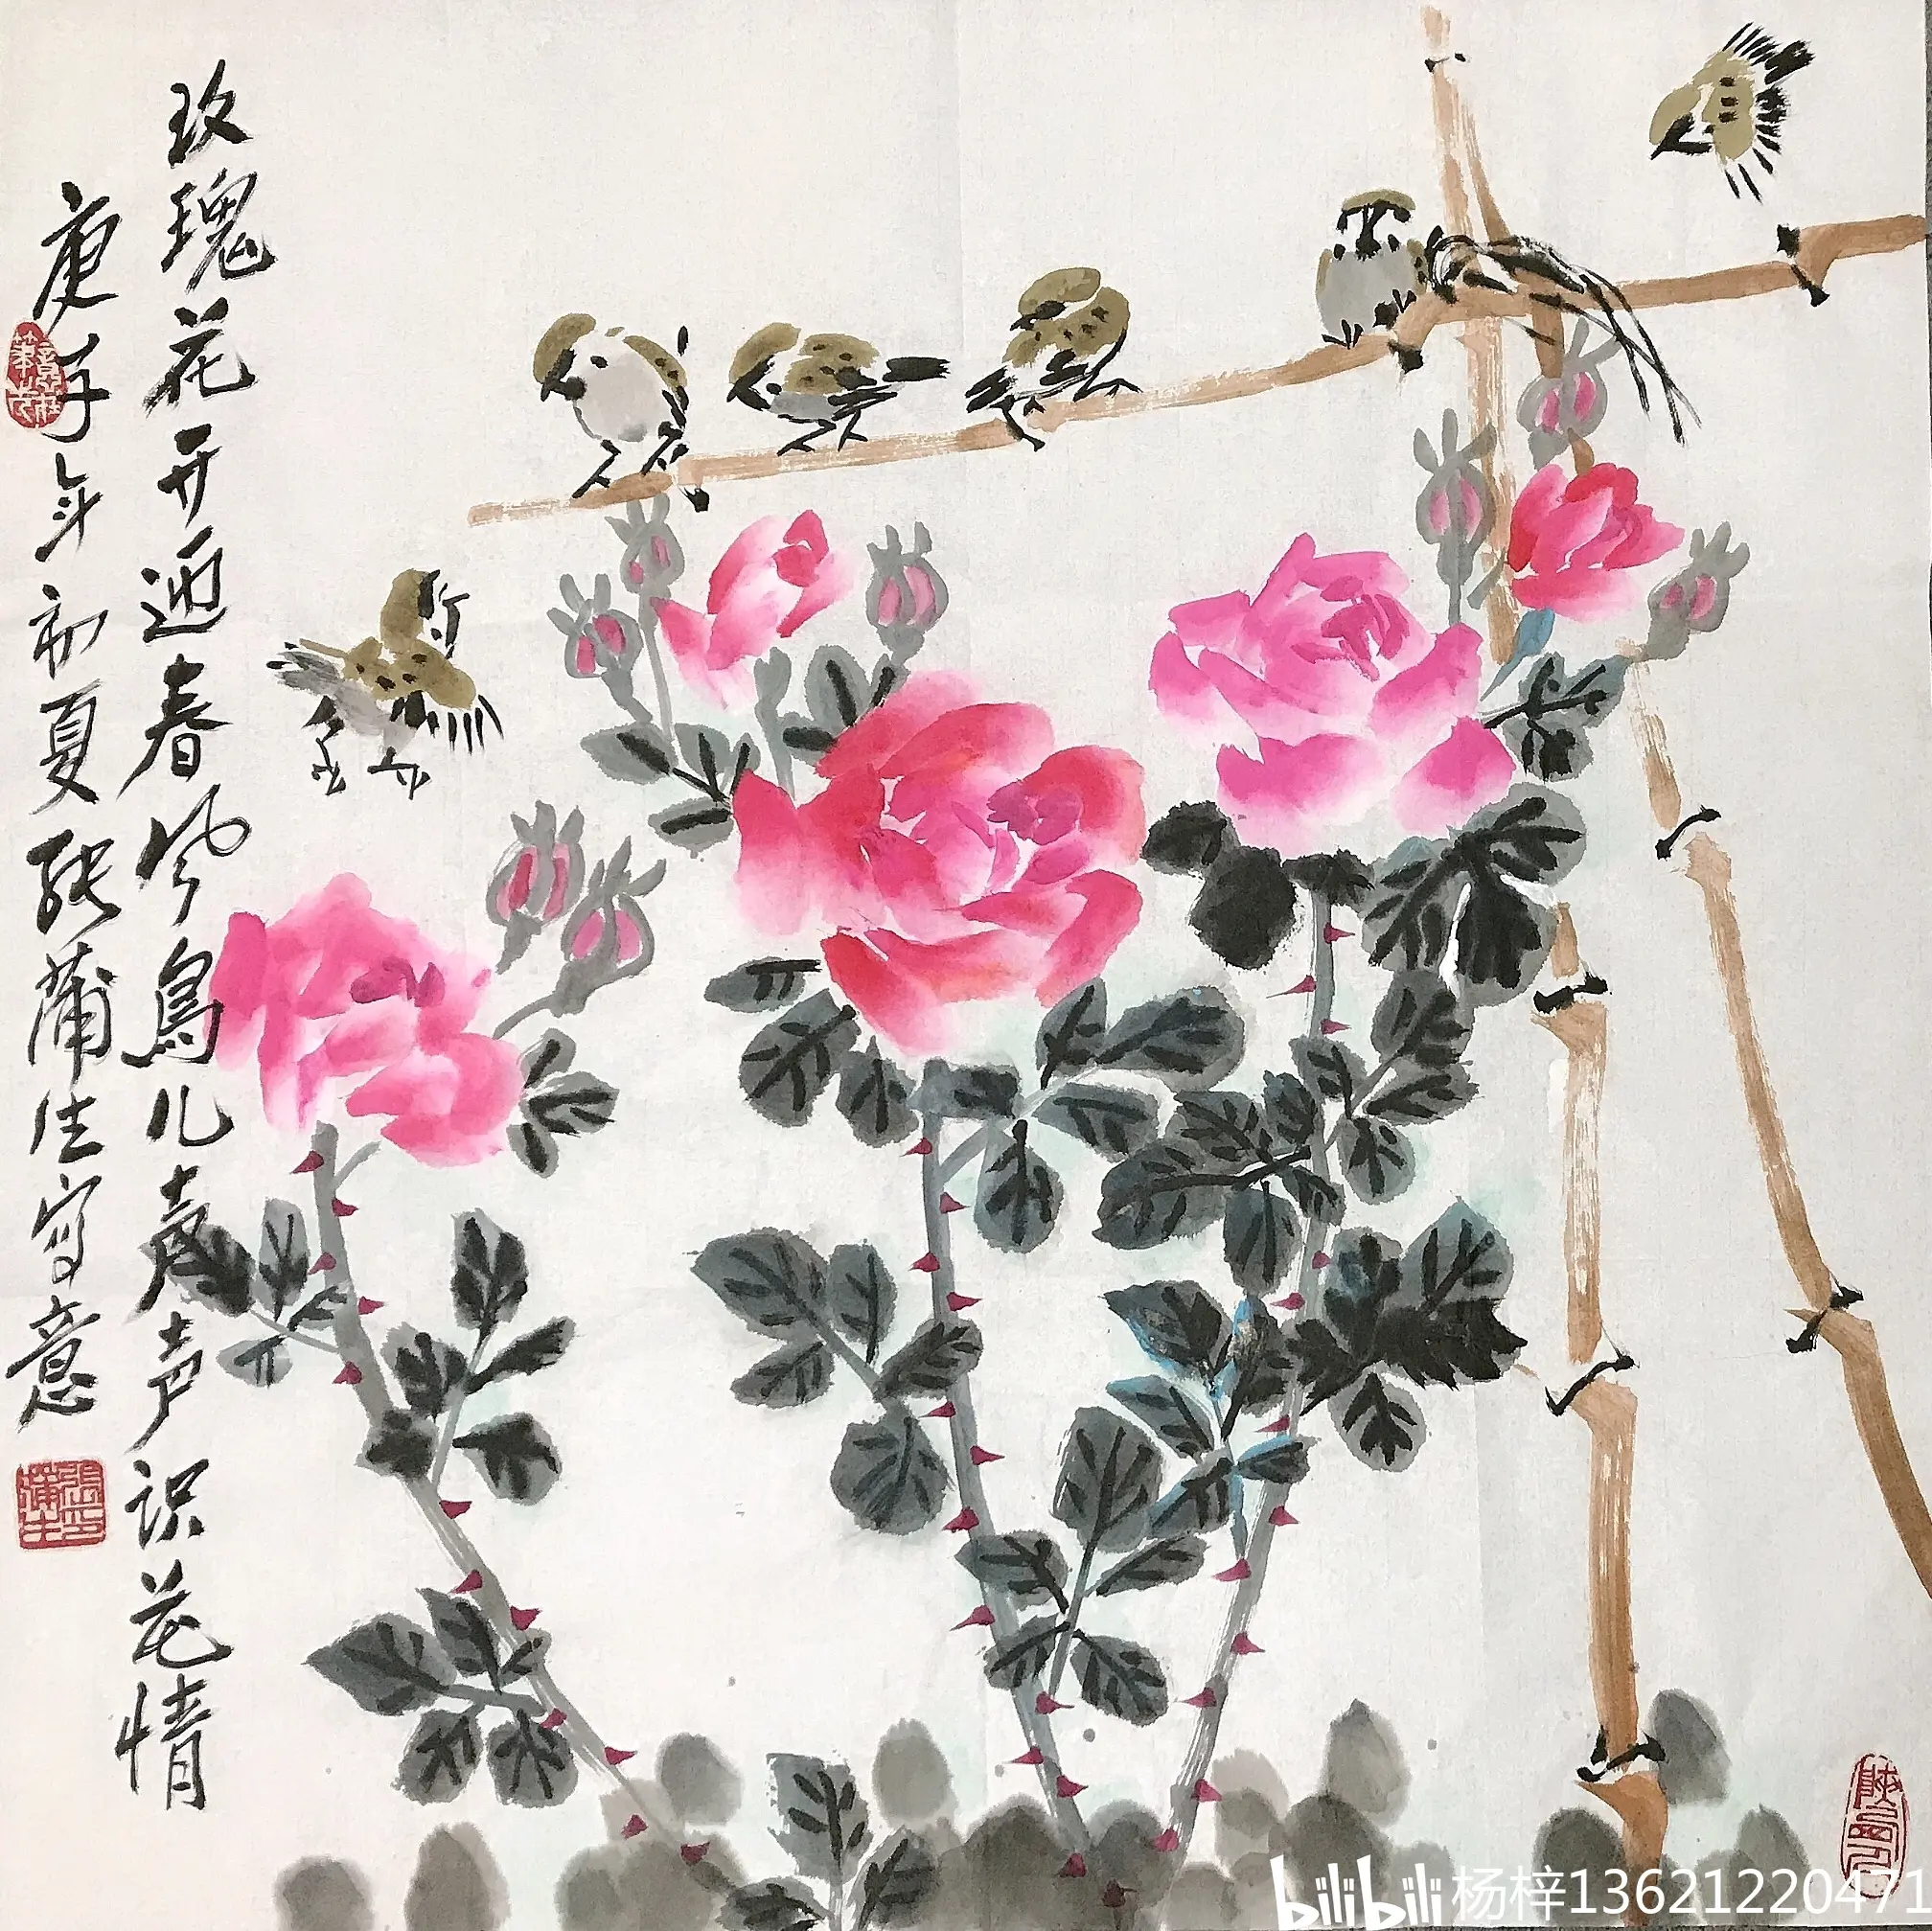 玫瑰花开迎春风鸟儿声声识花情
庚子年初夏张蒲生写意
张蒲生印
bilibili 杨梓13621220471